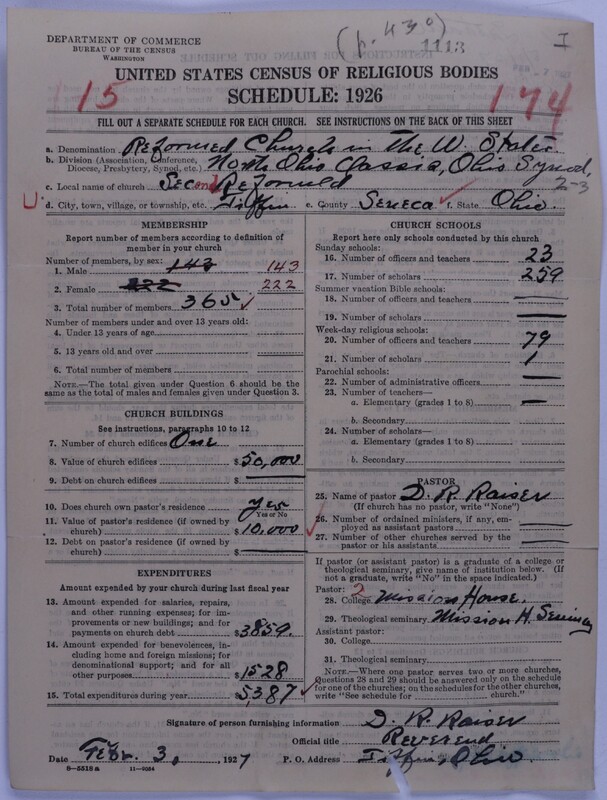 DEPARTMENT OF COMMERCE
BUREAU OF THE CENSUS
WASHINGTON
(p. 430)
1113
I
UNITED STATES CENSUS OF RELIGIOUS BODIES
SCHEDULE: 1926
15
174
FILL OUT A SEPARATE SCHEDULE FOR EACH CHURCH. SEE INSTRUCTIONS ON THE BACK OF THIS SHEET
a. Denomination Reformed Church in the U. States
b. Division (Association, Conference, Diocese, Presbytery, Synod, etc.) North Ohio Classis, Ohio Synod,
c. Local name of church Second Reformed
2-3
U d. City, town, village, or township, etc. Tiffin e. County Seneca f. State Ohio.
MEMBERSHIP
Report number of members according to definition of
member in your church
Number of members, by sex:
1. Male 143 143
2. Female 222 222
3. Total number of members 365
Number of members under and over 13 years old:
4. Under 13 years of age
5. 13 years old and over
6. Total number of members
NOTE.—The total given under Question 6 should be the
same as the total of males and females given under Question 3.
CHURCH BUILDINGS
See instructions, paragraphs 10 to 12
7. Number of church edifices One
8. Value of church edifices $50,000
9. Debt on church edifices $
10. Does church own pastor's residence yes
Yes or No
11. Value of pastor's residence (if owned by
church) $10,000
12. Debt on pastor's residence (if owned by
church) $
EXPENDITURES
Amount expended by your church during last fiscal year
13. Amount expended for salaries, repairs,
and other running expenses; for im-
provements or new buildings; and for
payments on church debt $3859.
14. Amount expended for benevolences, in-
cluding home and foreign missions; for
denominational support; and for all
other purposes $1528
15. Total expenditures during year $5,387
CHURCH SCHOOLS
Report here only schools conducted by this church
Sunday schools:
16. Number of officers and teachers 23
17. Number of scholars 259
Summer vacation Bible schools:
18. Number of officers and teachers
19. Number of scholars
Week-day religious schools:
20. Number of officers and teachers 79
21. Number of scholars 1
Parochial schools:
22. Number of administrative officers
23. Number of teachers—
a. Elementary (grades 1 to 8)
b. Secondary
24. Number of scholars—
a. Elementary (grades 1 to 8)
b. Secondary
PASTOR
25. Name of pastor D. R. Raiser
(If church has no pastor, write "None")
26. Number of ordained ministers, if any, em-
ployed as assistant pastors
27. Number of other churches served by the
pastor or his assistants
If pastor (or assistant pastor) is a graduate of a college or
theological seminary, give name of institution below. (If
not a graduate, write "No" in the space indicated.)
Pastor: 2
28. College Mission House.
29. Theological seminary Mission H. Seminary
Assistant pastor:
30. College
31. Theological seminary
NOTE.—Where one pastor serves two or more churches,
Questions 28 and 29 should be answered only on the schedule
for one of the churches; on the schedules for the other churches,
write "See schedule for church."
Signature of person furnishing information D. R. Raiser
Official title Reverend
Date Febr. 3, 1927 P. O. Address Tiffin, Ohio.
8—5518a 11—9264